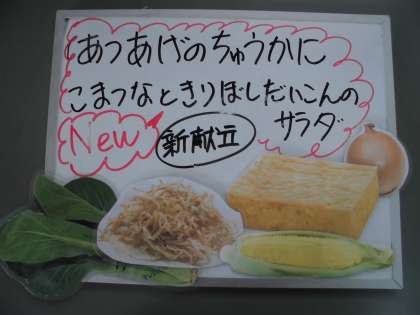 あつあげのちゅうかに
こまつなときりぼしだいこんの
サラダ
New 新献立